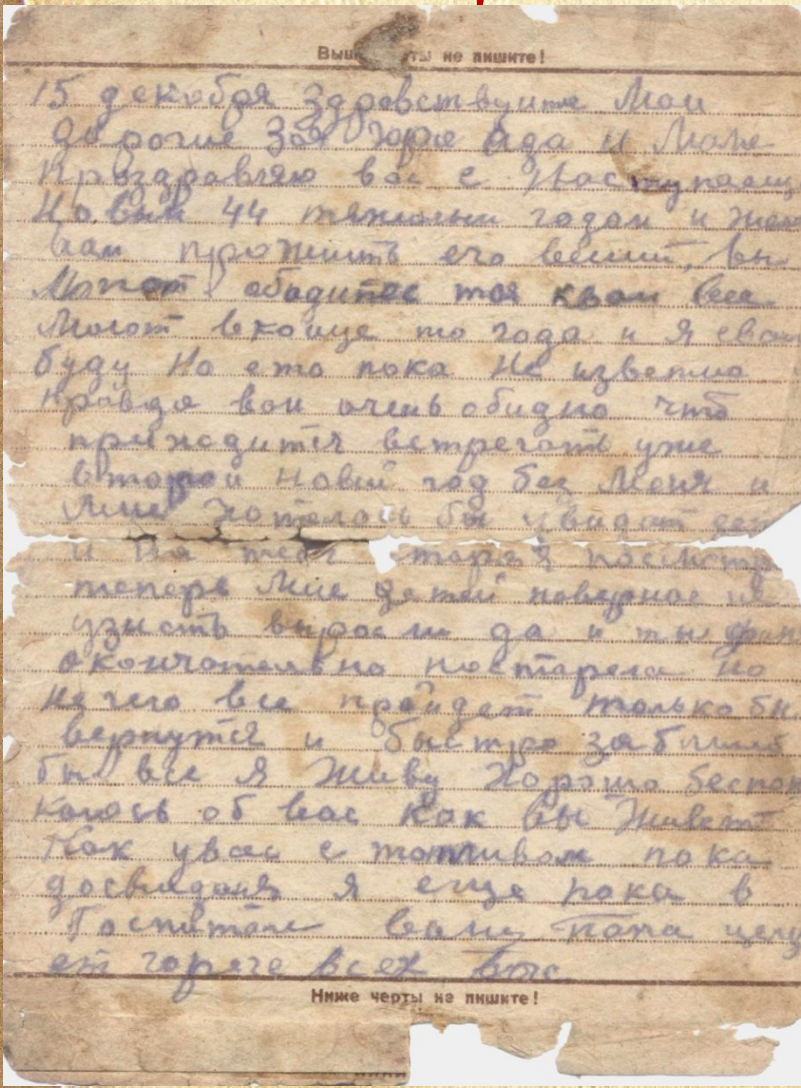 Выше черты не пишите!
15 декабря Здравствуите Мои
дорогие Зоя Юра Ада и
Праздравляю вас с Наступающ
Новым 44 тяжолым годом и жел
вам прожить его вы
обадитес
Может вконце то года и я свами
буду Но ето пока Не известно
Правда вам очень обидно что
приходится встречать уже
второй новый год без Меня и
Мне Хотелось бы увидат дет
и На тебя старая посмотр
теперь Мне детей наверное не
узнать выросли да и ты
окончателвно постарела но
нечего все пройдет толькобы
вернутся и быстро забыли
бы все Я Живу Хорошо беспоко
коюсь об вас Как Вы Живете
Как увас с топливом пока
досвиданя я еще пока в
Госпитале ваш Папа целу
ет горяче всех вас
Ниже черты не пишите!